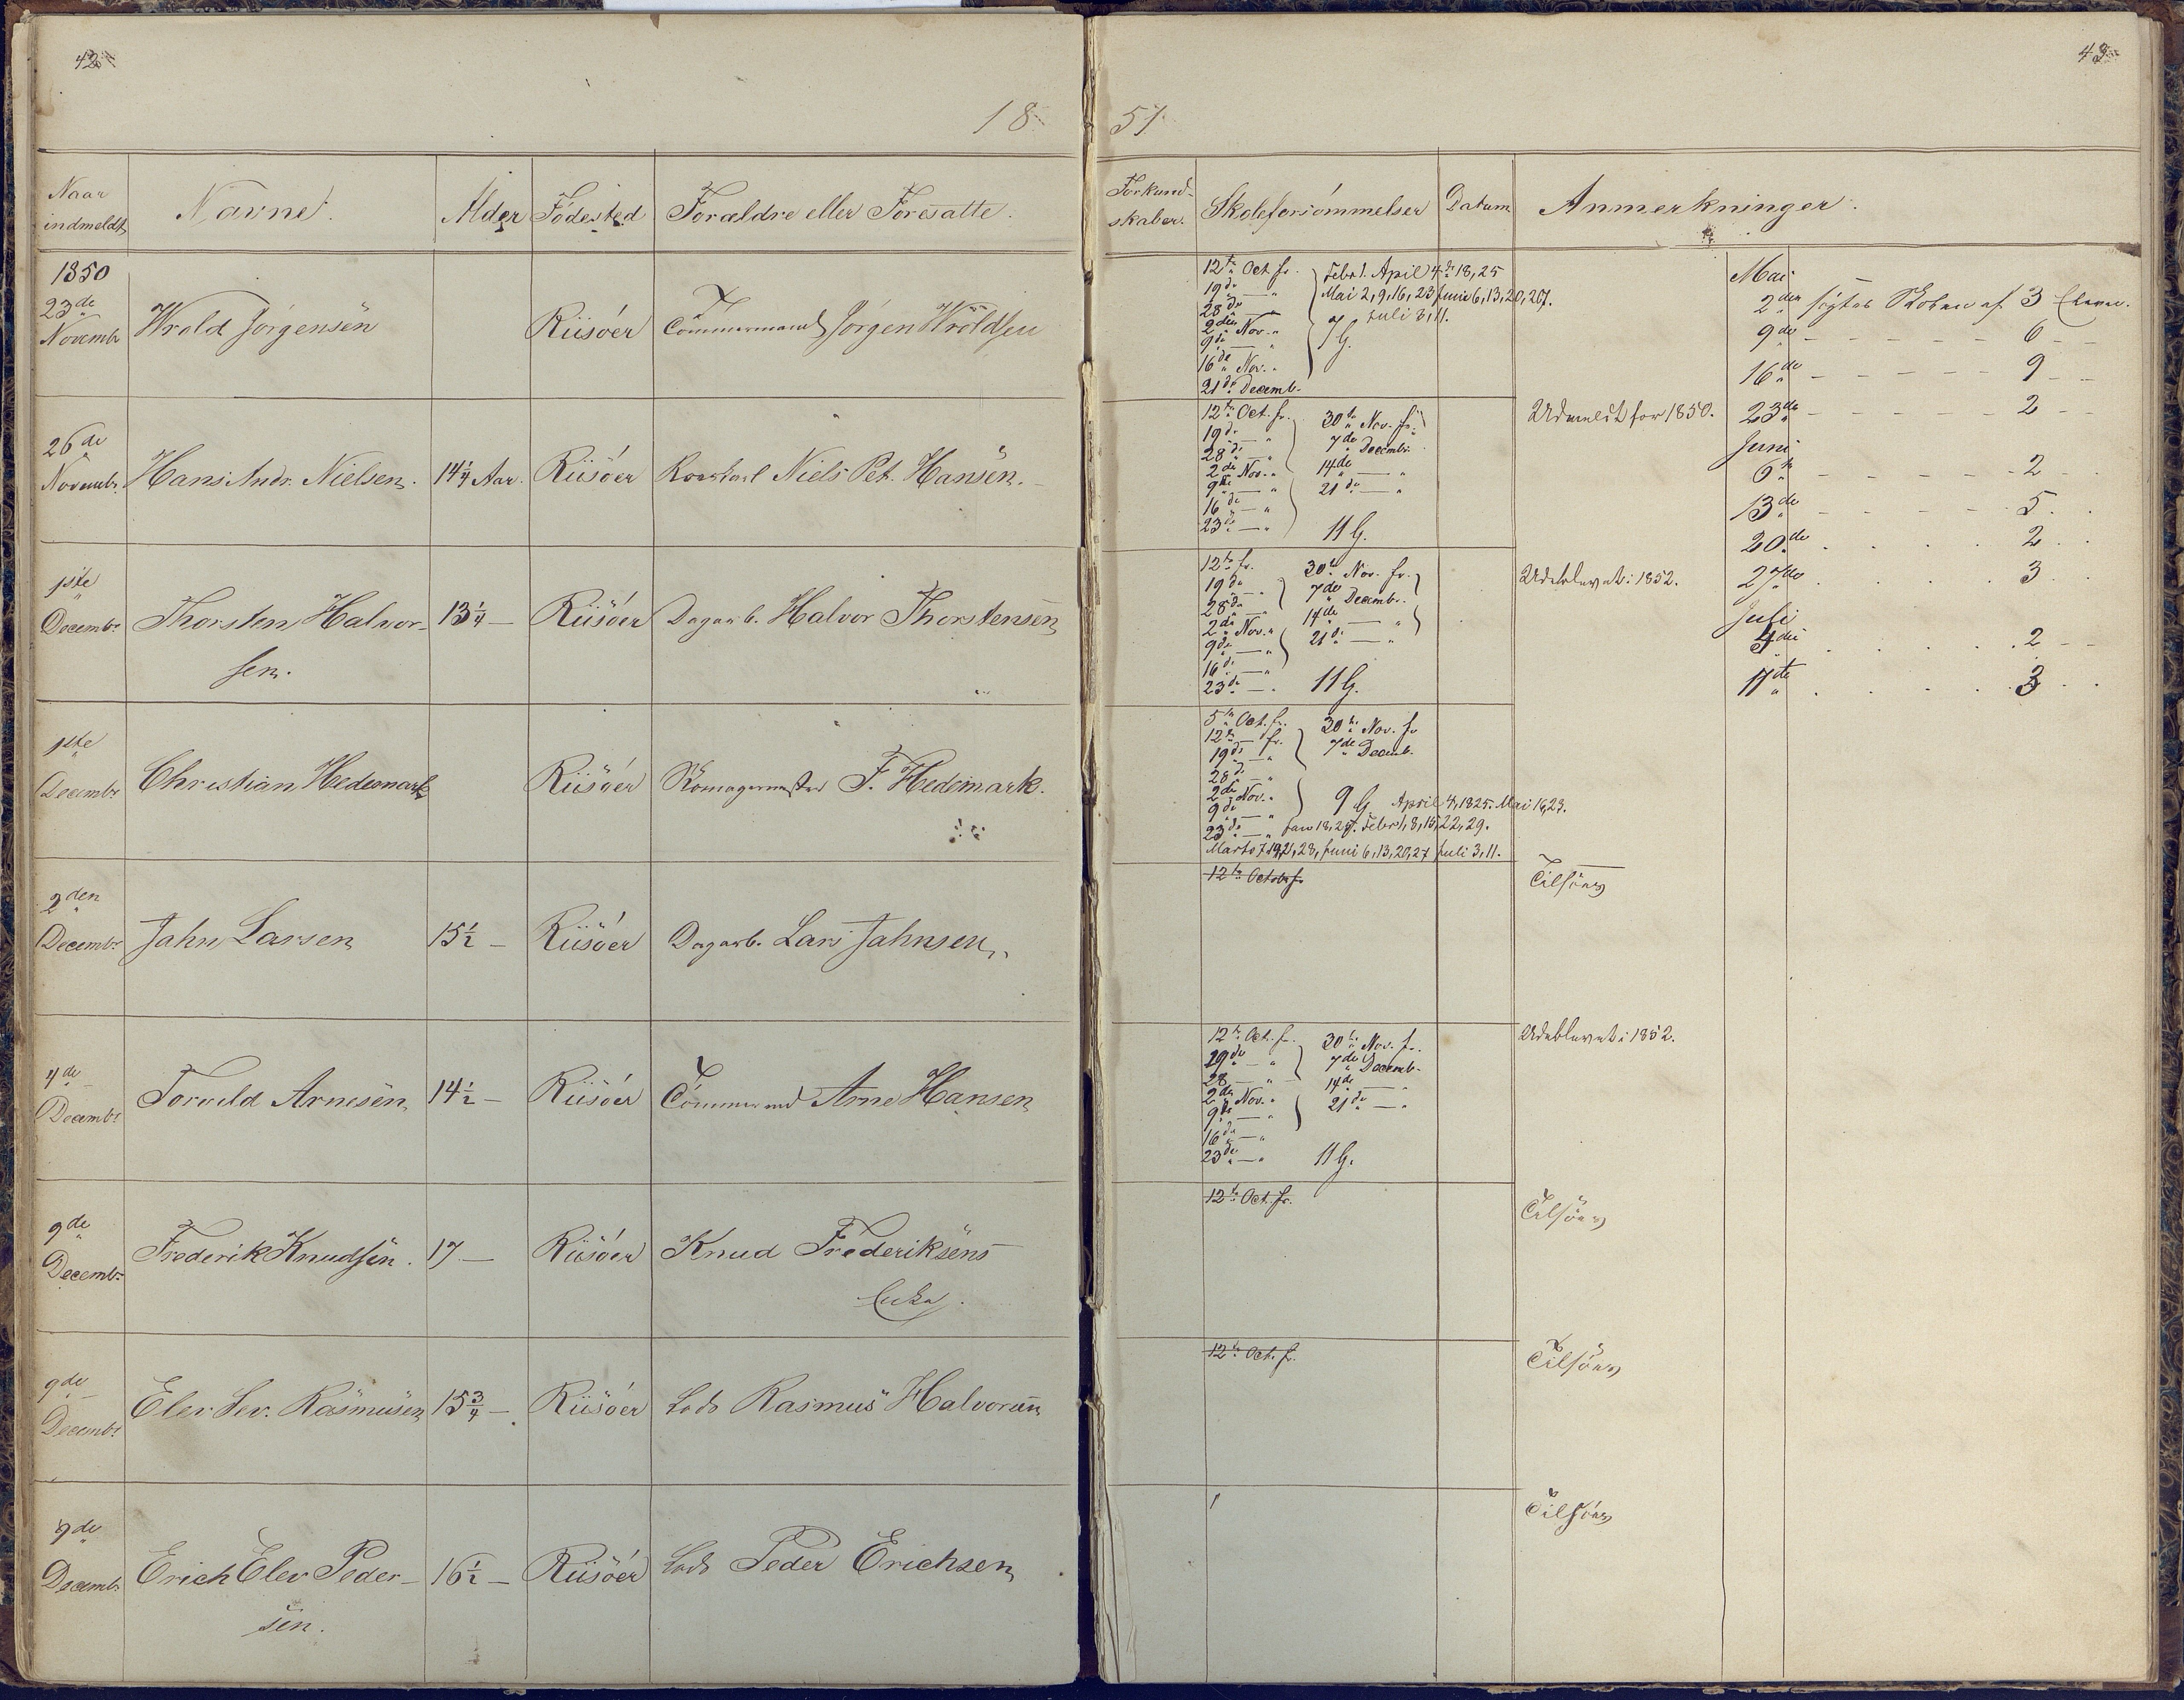 42
43
18 51
Naar indmeldt Navne. Alder Födested Forældre eller Foresatte. Forkundskaber. Skoleforsömmelser Datum Anmerkninger.
1850
23de Novembr Wrold Jörgensen Riisöer Tömmermand Jörgen Wroldsen
12te Oct. fr.
19de — "
28de — "
2den Nov. "
9de — "
16de Nov. "
21de Decemb.
Febr 1. April 4de 18, 25
Mai 2, 9, 16, 23 Juni 6, 13, 20, 27.
Juli 3, 11.
7 G.
26de Novembr. Hans Andr. Nielsen. 14¼ Aar. Riisöer Niels Pet. Hansen.
12te Oct. fr.
19de — "
28de — "
2de Nov. "
9de — "
16de — "
23de — "
30te Nov. fr.
7de Decembr.
14de — "
21de — "
11 G.
Udmeldt for 1850.
1ste Decembr. Thorsten Halvorsen. 13¼ — Riisöer Dagarb. Halvor Thorstensen
12te fr.
19de — "
28de — "
2de Nov. "
9de — "
16de — "
23de — "
30te Nov. fr.
7de Decembr.
14de — "
21de — "
11 G.
Udeblevet i 1852.
1ste Decembr. Christian Hedemark Riisöer F. Hedemark.
5te Oct. fr.
12te — fr.
19de — "
28de — "
2de Nov. "
9de — "
23de — "
30te Nov. fr
7de Decemb.
9 G. April 4, 18 25. Mai 16, 23.
Jan 18, 25. Febr 1, 8, 15, 22, 29.
Marts 7 14, 21, 28, Juni 6, 13, 20, 27 Juli 3, 11.
2den Decembr Jahn Larsen 15½ — Riisöer Dagarb. Lars Jahnsen
12te Octobr fr
Tilsöes
4de Decembr. Torvild Arnesen 14½ — Riisöer Tömmermd Arne Hansen
12te Oct. fr.
19de — "
28 — "
2de Nov. "
9de — "
16de — "
23de — "
30te Nov. fr.
7de Decemb.
14de — "
21de — "
11 G.
Udeblevet i 1852.
9de Decembr Frederik Knudsen. 17 — Riisöer Knud Frederiksens Enke.
12te Oct. fr.
Tilsöes
9de Decembr. Elev Sev. Rasmusen 15¾ — Riisöer Lods Rasmus Halvorsen
12te Oct. fr.
Tilsöes
9de Decembr. Erich Elev Pedersen. 16½ — Riisöer Lods Peder Erichsen
Tilsöes
Mai
2den Skolen af 3 Elever.
9de — — — 6 —
16de — — — 9 —
23de — — — 2 —
Juni
6te — — — 2
13de — — — 5 .
20de . . . 2 .
27de . . . 3
Juli
. . . 2 —
11te . . . 3